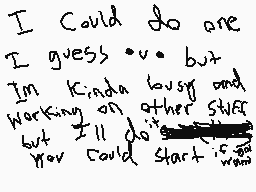 I could do one
I guess •v• but
Im kinda busy and
working on other stuff
but I'll do it
you could start if you
want